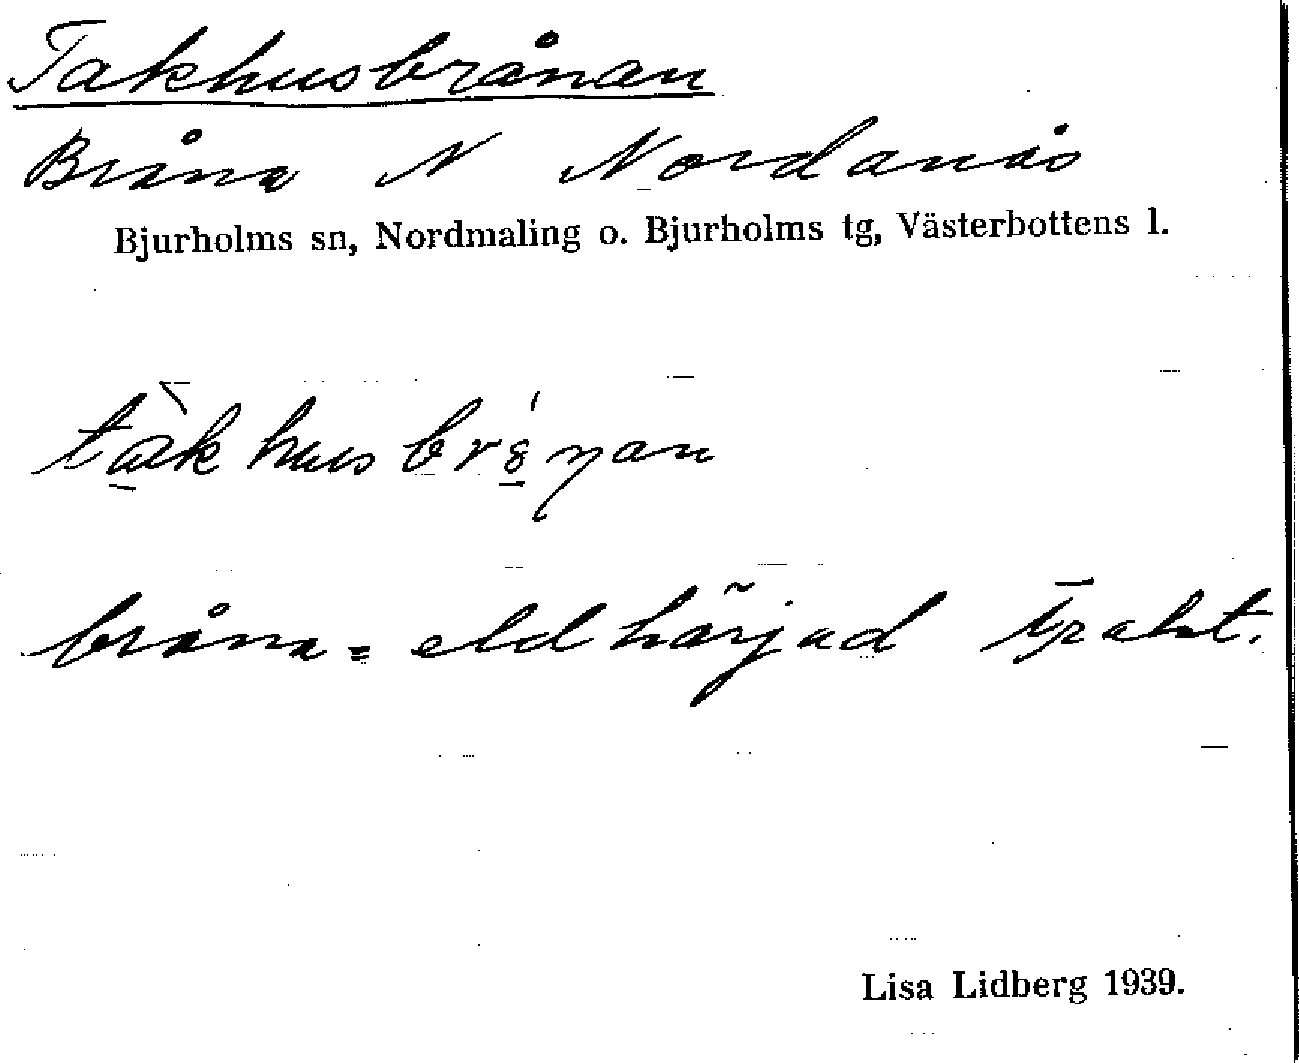 Takhusbrånan
Bråna N Nordanås
Bjurholms sn, Nordmaling o. Bjurholms tg, Västerbottens l.
bråna = eldhärjad trakt.
Lisa Lidberg 1939.